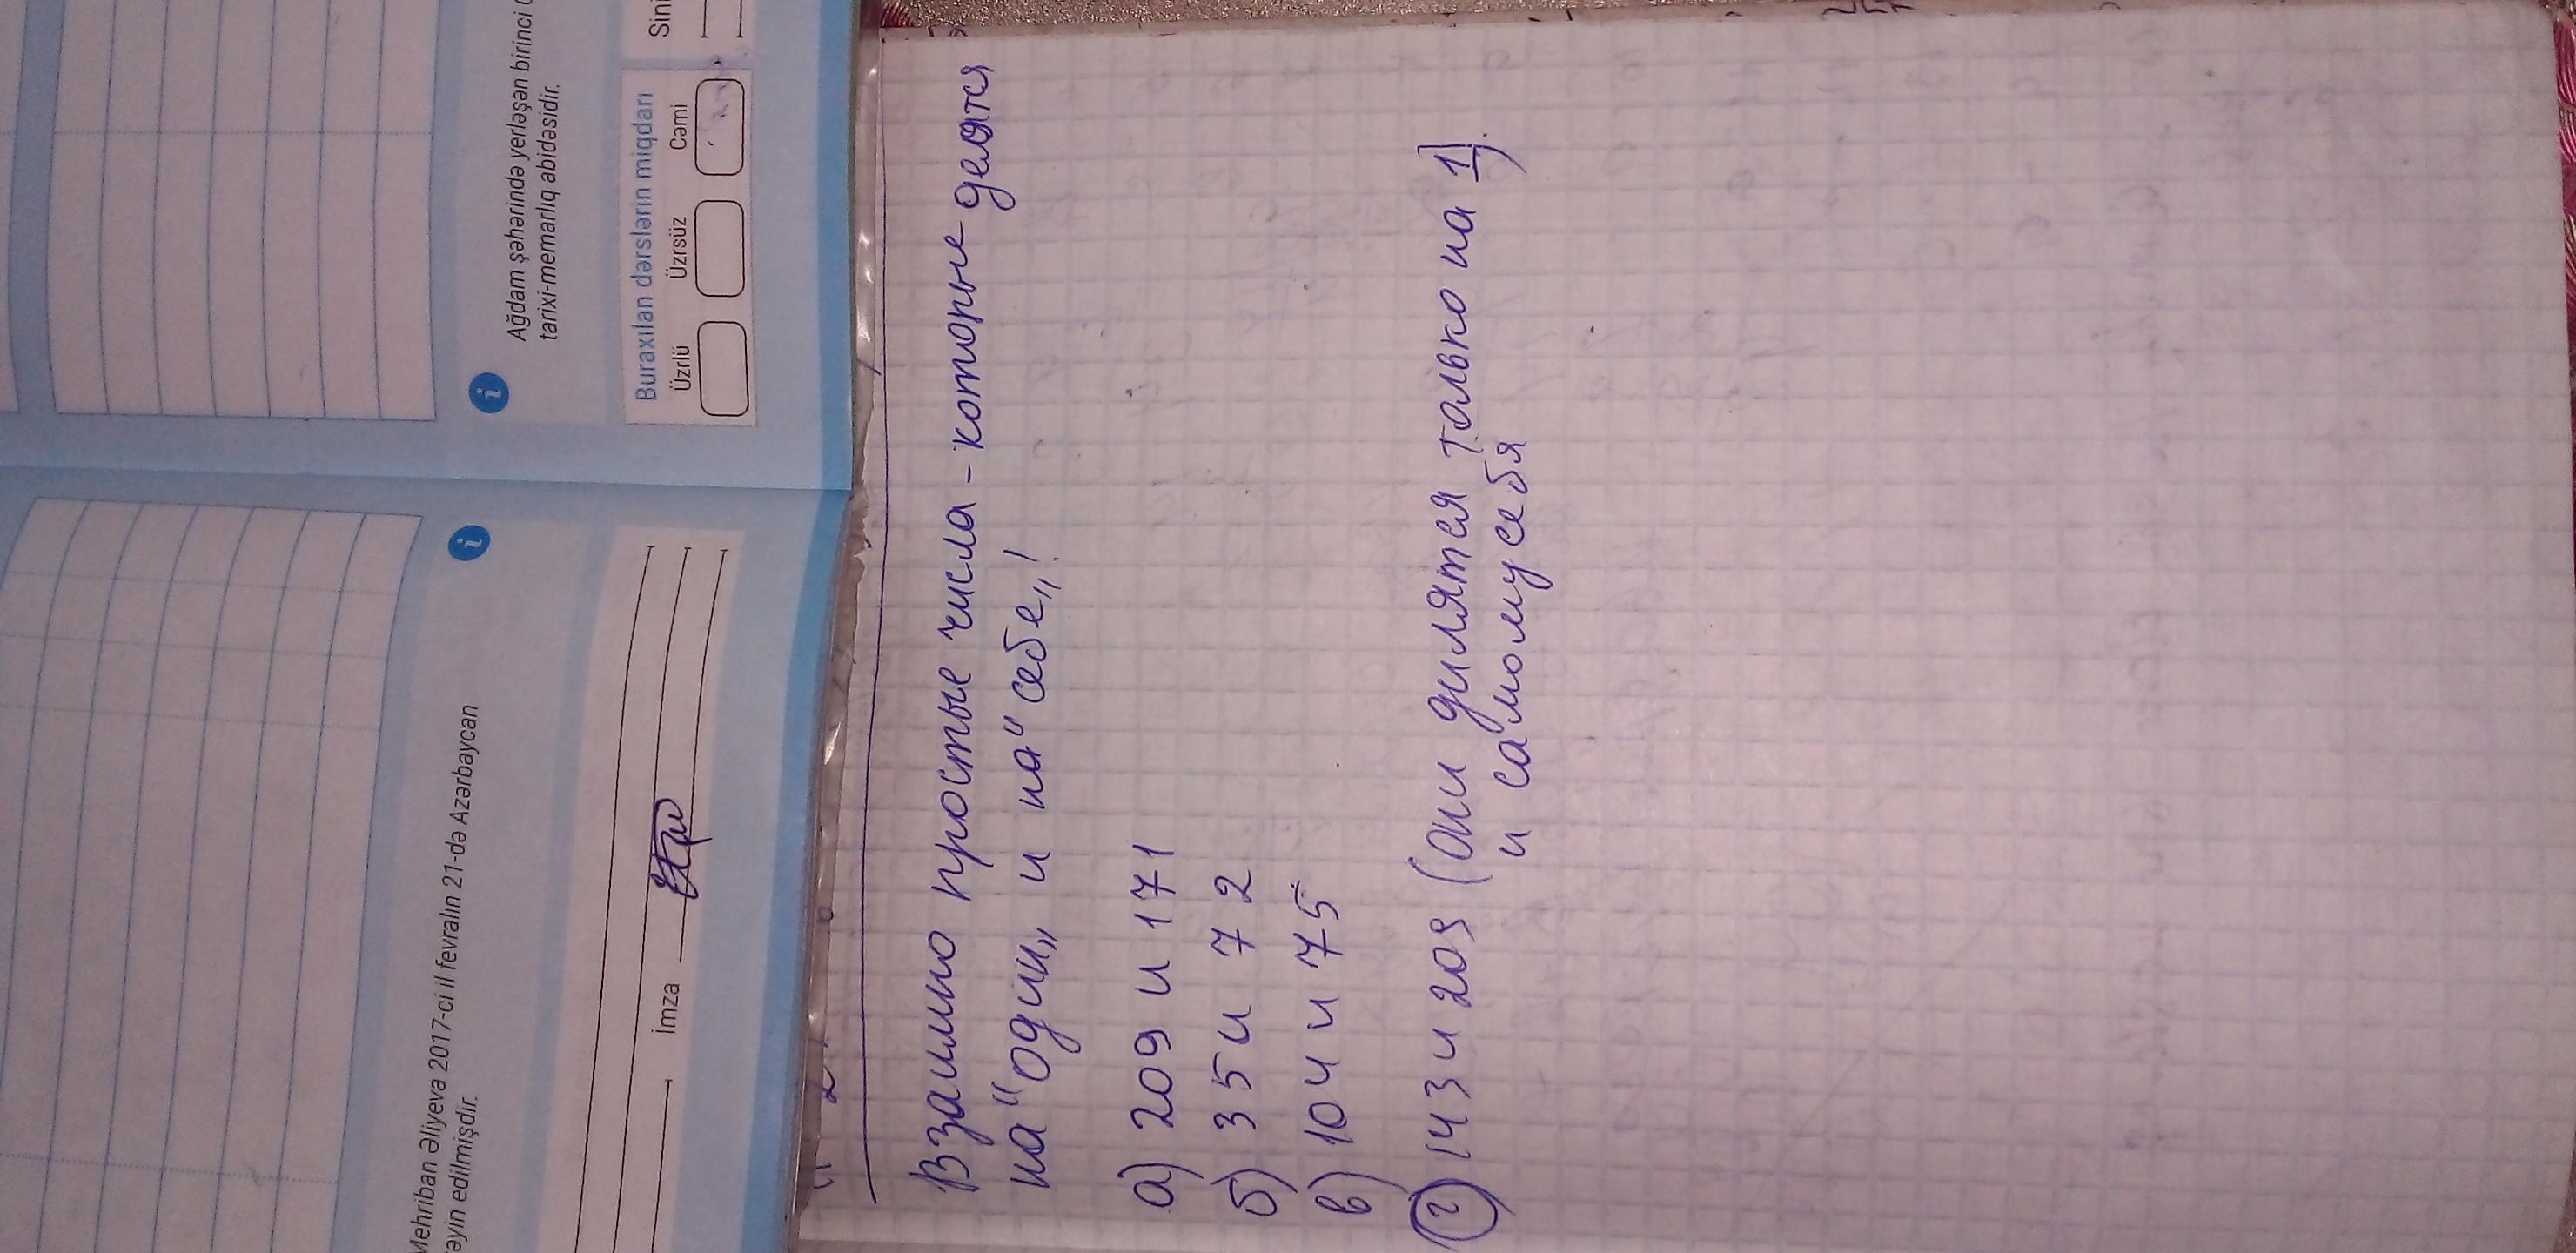 Mehriban Əliyeva 2017-ci il fevralın 21-də Azərbaycan
təyin edilmişdir.
İmza
Ağdam şəhərində yerləşən birinci
tarixi-memarlıq abidəsidir.
Buraxılan dərslərin miqdarı
Üzrlü Üzrsüz Cəmi
Взаимно простые числа - которые делятся
на "один„ и на "себе„!
а) 209 и 171
б) 35 и 72
в) 104 и 75
г) 143 и 209 (они дилятся только на 1)
и самому себя